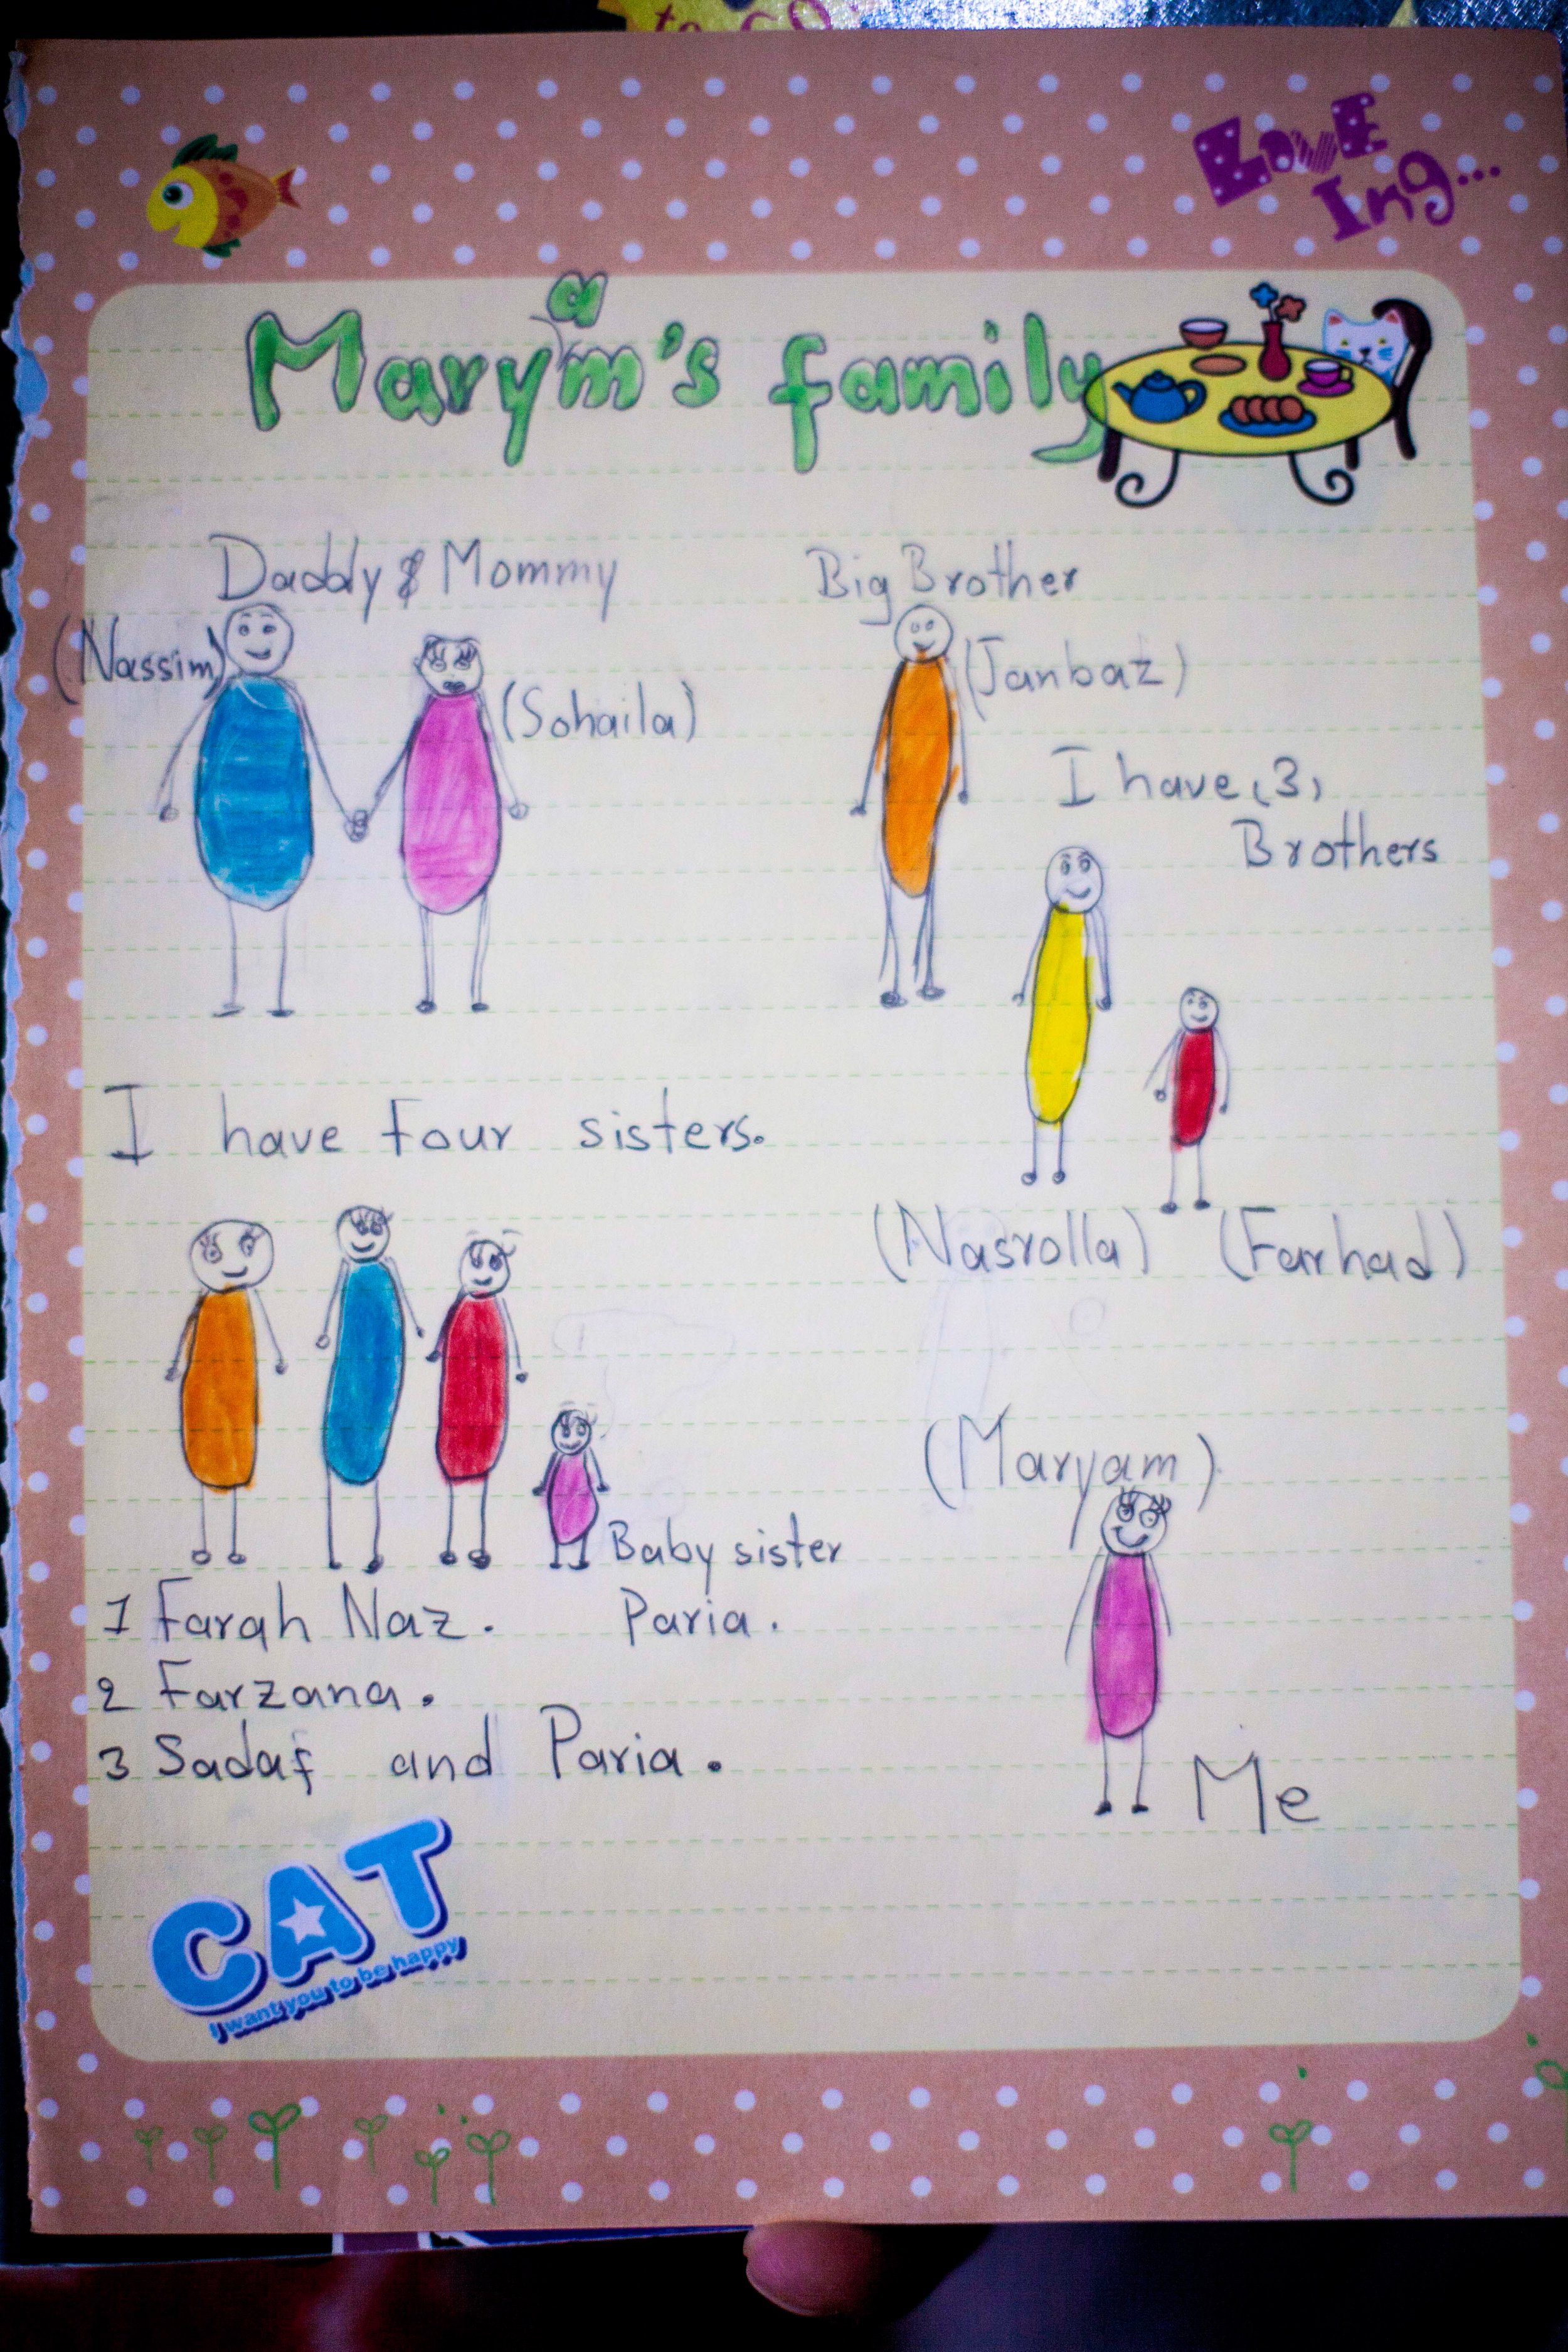 Love
Ing...
Maryam's family
Daddy & Mommy
(Nassim)
(Sohaila)
Big Brother
(Janbaz)
I have (3)
Brothers
(Nasrolla) (Farhad)
I have four sisters.
Baby sister
Paria.
1 Farah Naz.
2 Farzana.
3 Sadaf and Paria.
(Maryam)
Me
CAT
I want you to be happy